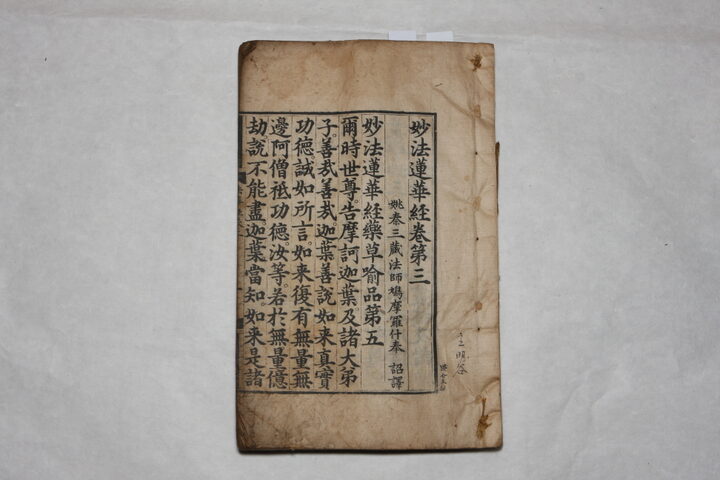 妙法蓮華經卷第三
姚秦三藏法師鳩摩羅什奉 詔譯
妙法蓮華經藥草喻品第五
爾時世尊。告摩訶迦葉。及諸大弟
子。善哉善哉。迦葉善說如來真實
功德。誠如所言。如來復有無量無
邊阿僧祇功德。汝等。若於無量億
劫。說不能盡。迦葉當知。如来是諸